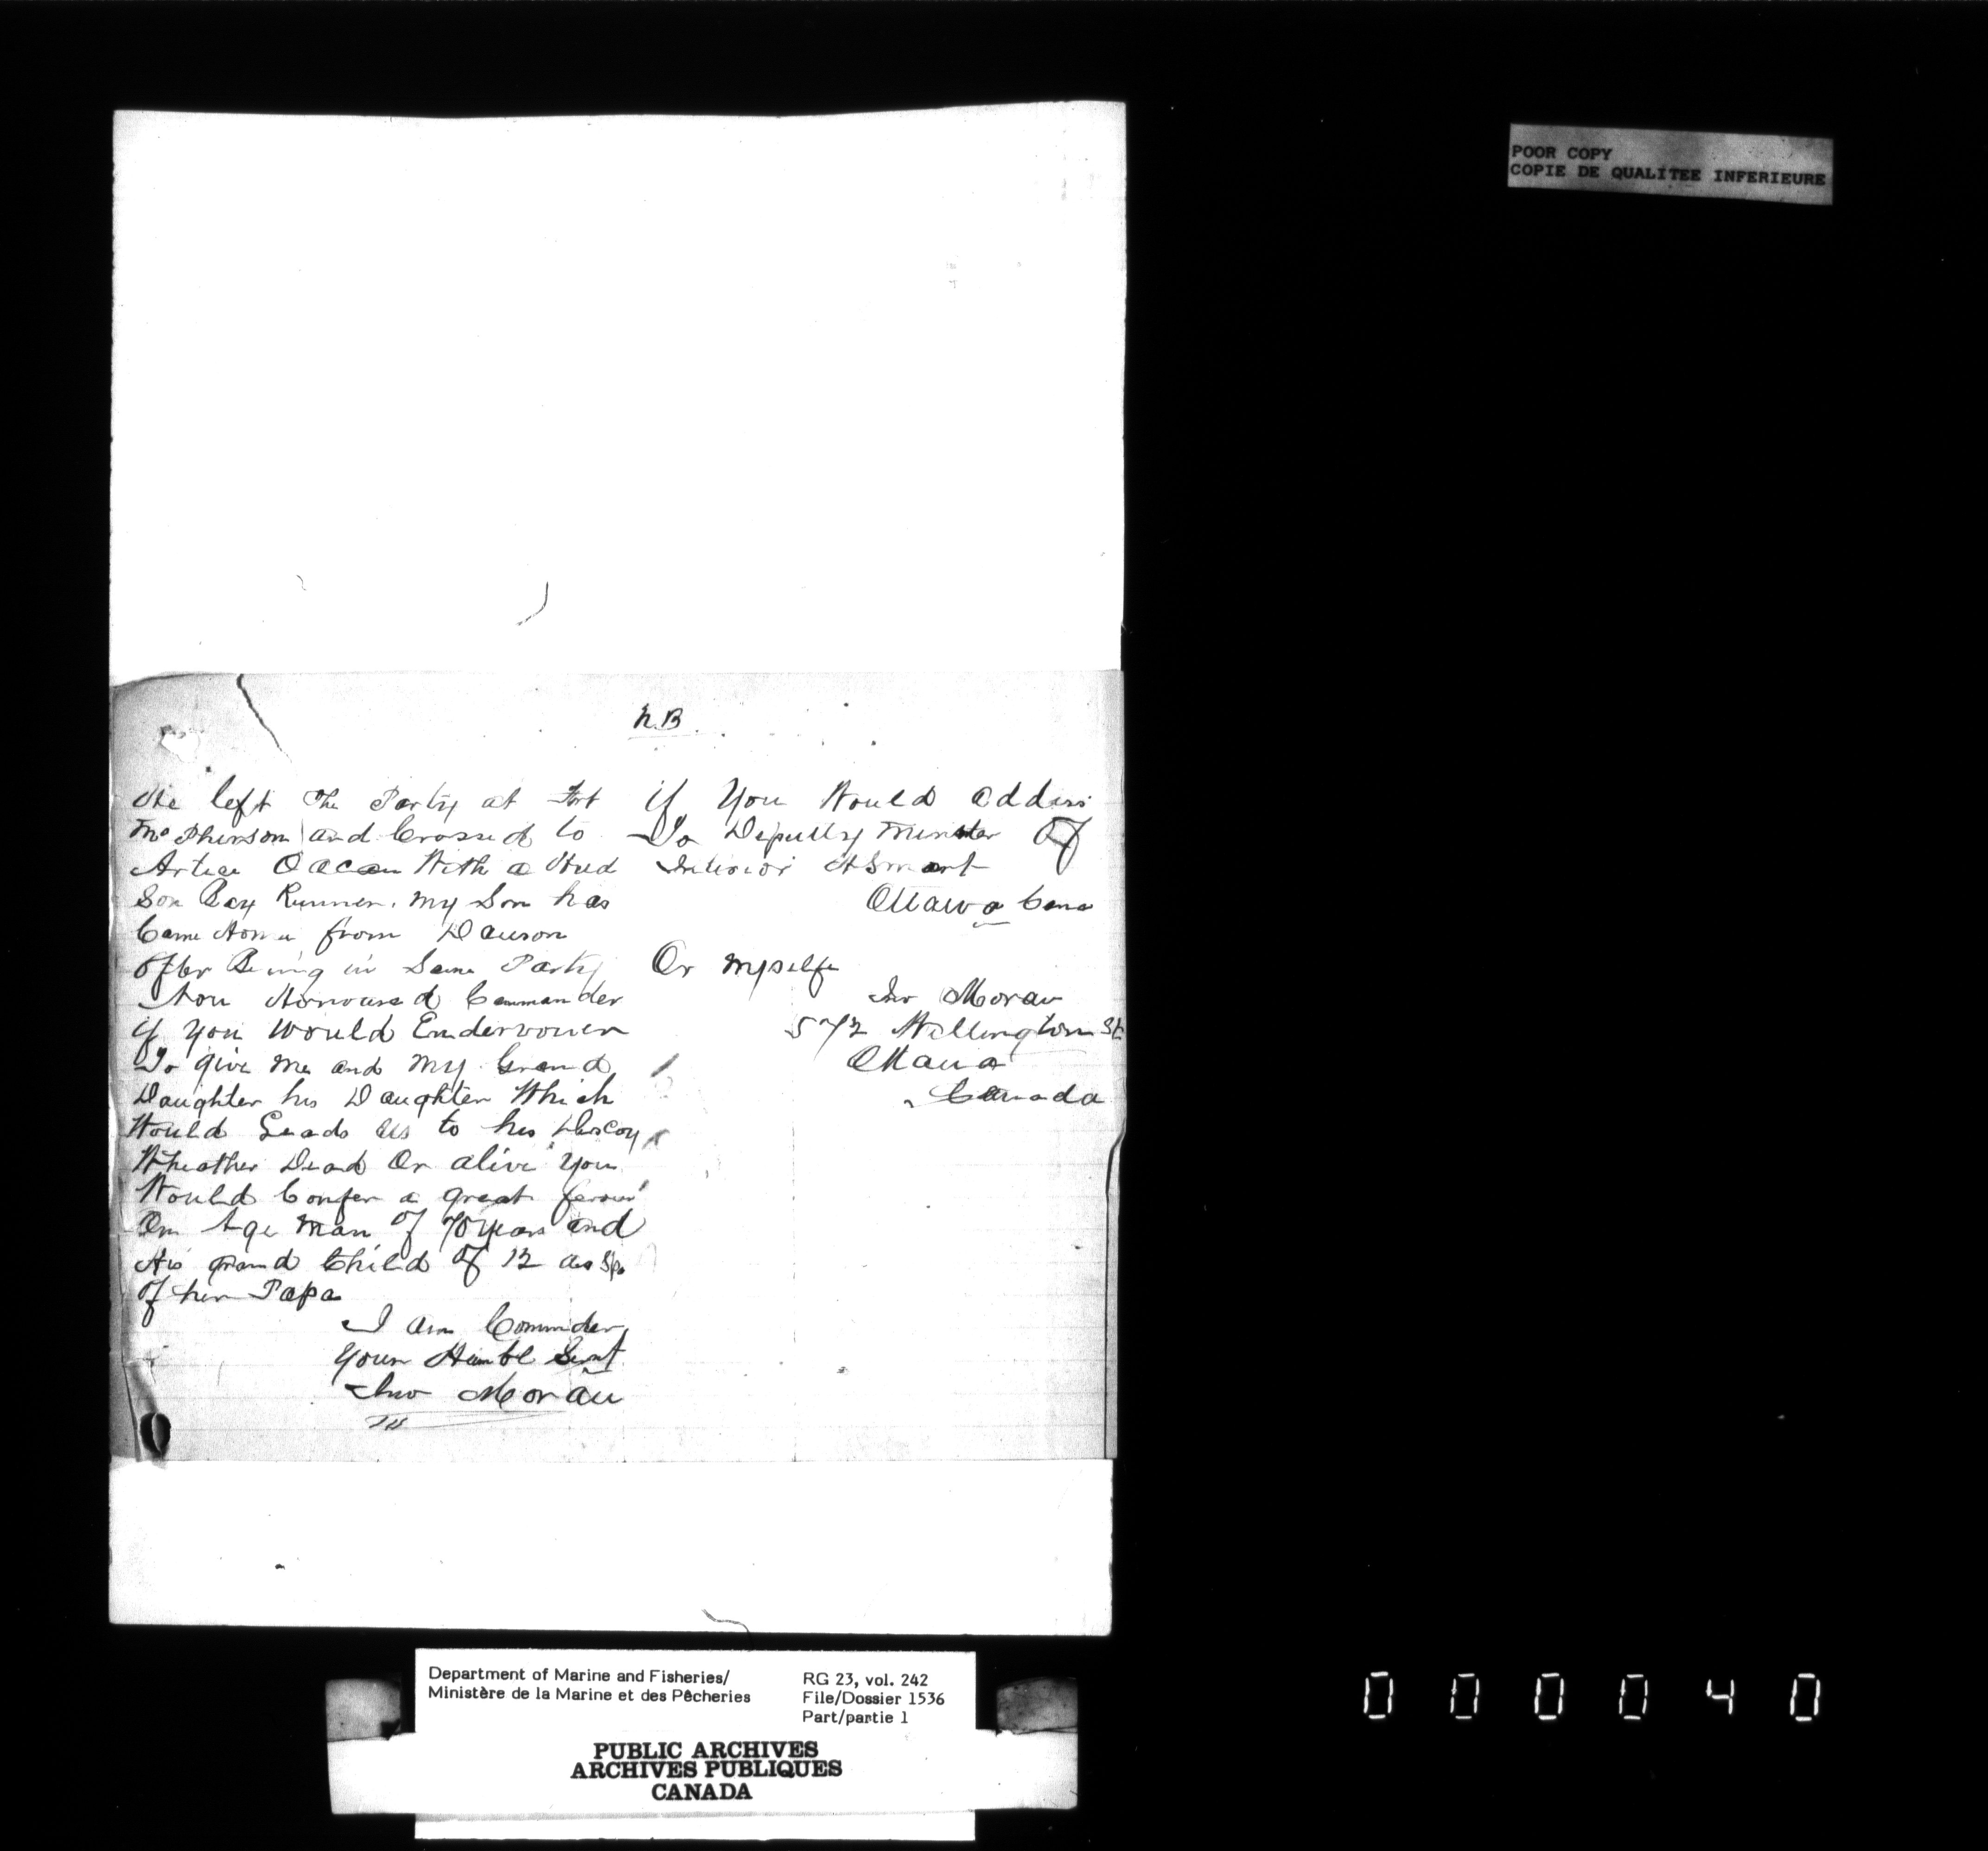 POOR COPY
COPIE DE QUALITEE INFERIEURE
N.B.
He left the Party at Fort
McPherson and Crossed to
Artice Oacean With a Hud
Son Bay Runner. My Son has
Came Home from Dauson
After Being in Same Party
Now Honoured Commander
if You Would Endervouer
To give me and My Grand
Daughter his Daughter Which
Would Leads Us to his
Wheather Dead Or alive You
Would Confer a great favour
On Age Man of 70 years and
His grand Child of 12
of her Papa
I am Commder
Your Humbl Servt
Jno Moran
if You Would Address
To Deputty Minister Of
Interior J Smart
Ottawa Cana
Or Myselfe
Jno Moran
572 Wellington St
Ottawa
Canada
Department of Marine and Fisheries/
Ministère de la Marine et des Pêcheries
RG 23, vol. 242
File/Dossier 1536
Part/partie 1
PUBLIC ARCHIVES
ARCHIVES PUBLIQUES
CANADA
000040